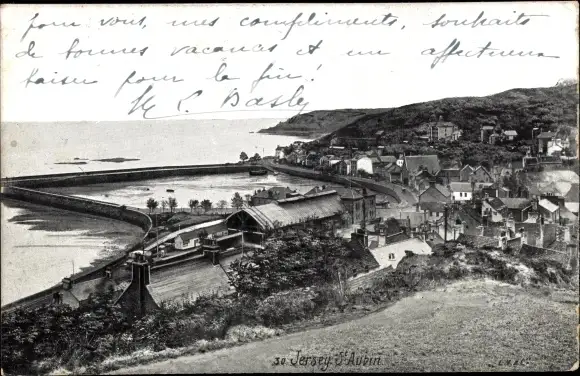 pour vous, mes compliments, souhaits
de bonnes vacances et un affectueux
baiser pour la fin!
C. Basley
30 Jersey St Aubin
L.V.&C.